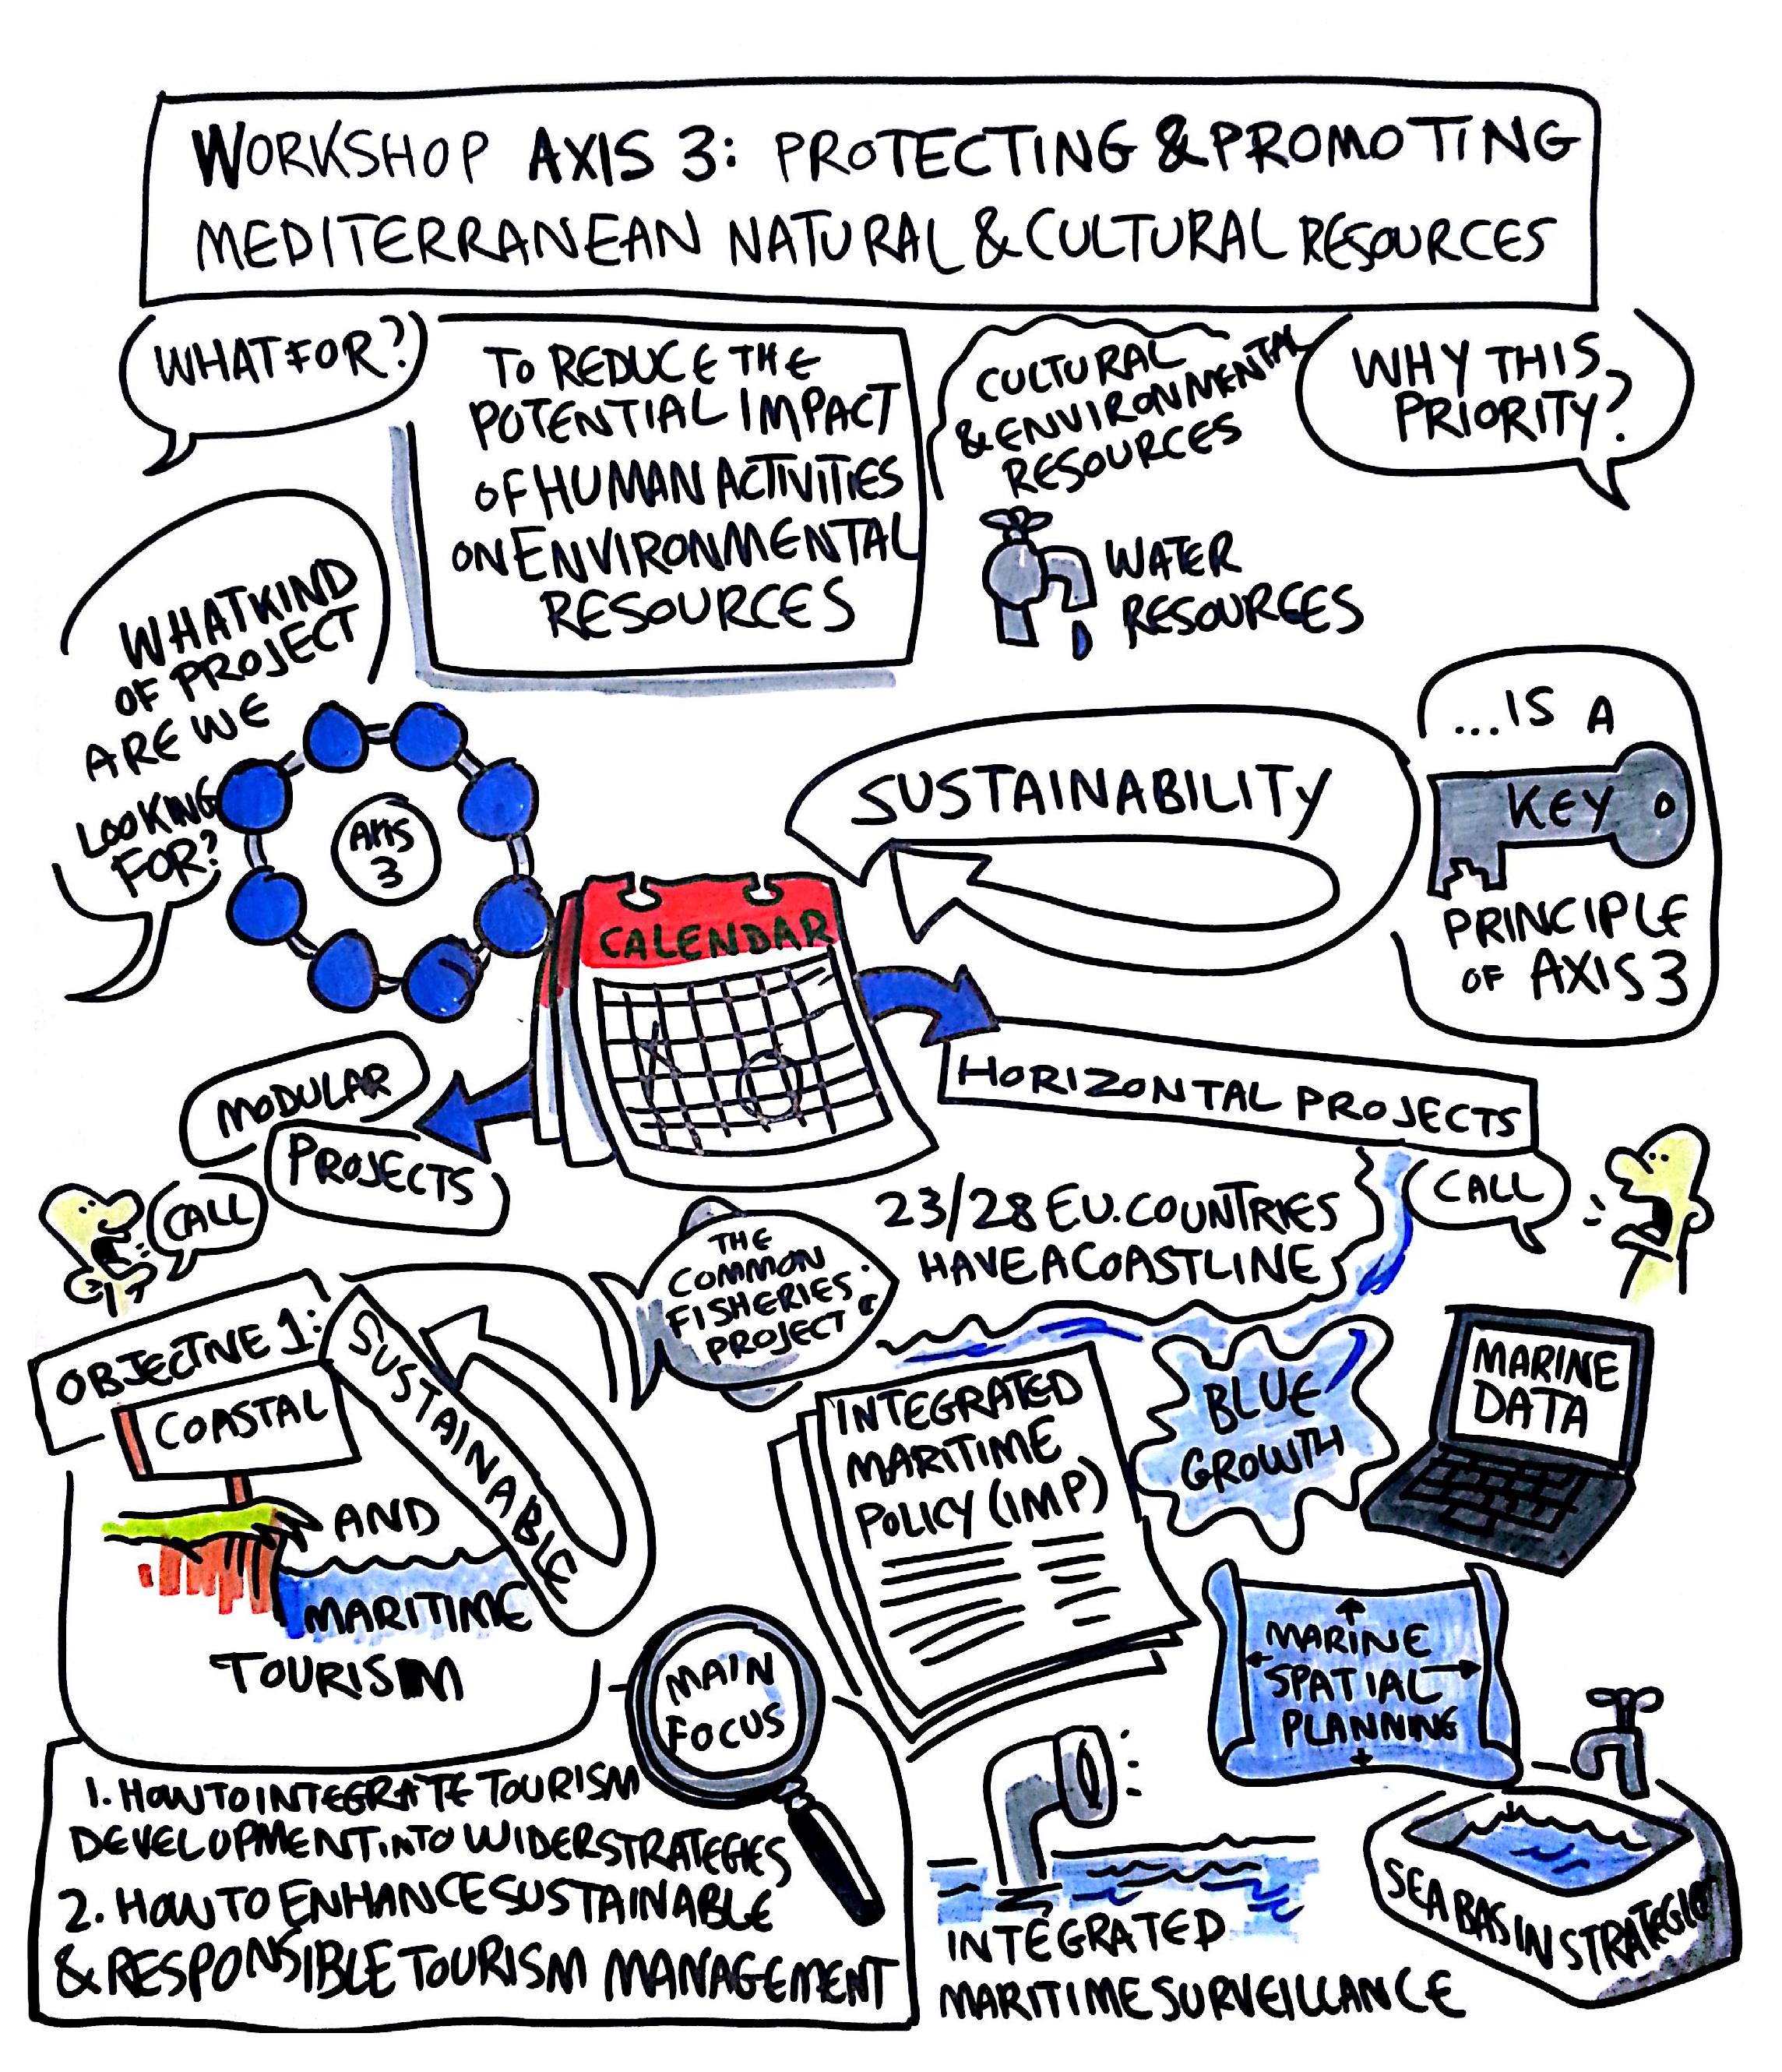 WORKSHOP AXIS 3: PROTECTING & PROMOTING
MEDITERRANEAN NATURAL & CULTURAL RESOURCES
WHAT FOR?
TO REDUCE THE
POTENTIAL IMPACT
OF HUMAN ACTIVITIES
ON ENVIRONMENTAL
RESOURCES
CULTURAL
& ENVIRONMENTAL
RESOURCES
WATER
RESOURCES
WHY THIS
PRIORITY?
WHAT KIND
OF PROJECT
ARE WE
LOOKING
FOR?
AXIS
3
SUSTAINABILITY
...IS A
KEY
PRINCIPLE
OF AXIS 3
CALENDAR
MODULAR
PROJECTS
CALL
HORIZONTAL PROJECTS
CALL
23/28 E.U. COUNTRIES
HAVE A COASTLINE
THE
COMMON
FISHERIES
PROJECT
OBJECTIVE 1:
SUSTAINABLE
COASTAL
AND
MARITIME
TOURISM
INTEGRATED
MARITIME
POLICY (IMP)
BLUE
GROWTH
MARINE
DATA
MARINE
SPATIAL
PLANNING
MAIN
FOCUS
1. HOW TO INTEGRATE TOURISM
DEVELOPMENT INTO WIDER STRATEGIES
2. HOW TO ENHANCE SUSTAINABLE
& RESPONSIBLE TOURISM MANAGEMENT
INTEGRATED
MARITIME SURVEILLANCE
SEA BASIN STRATEGIES